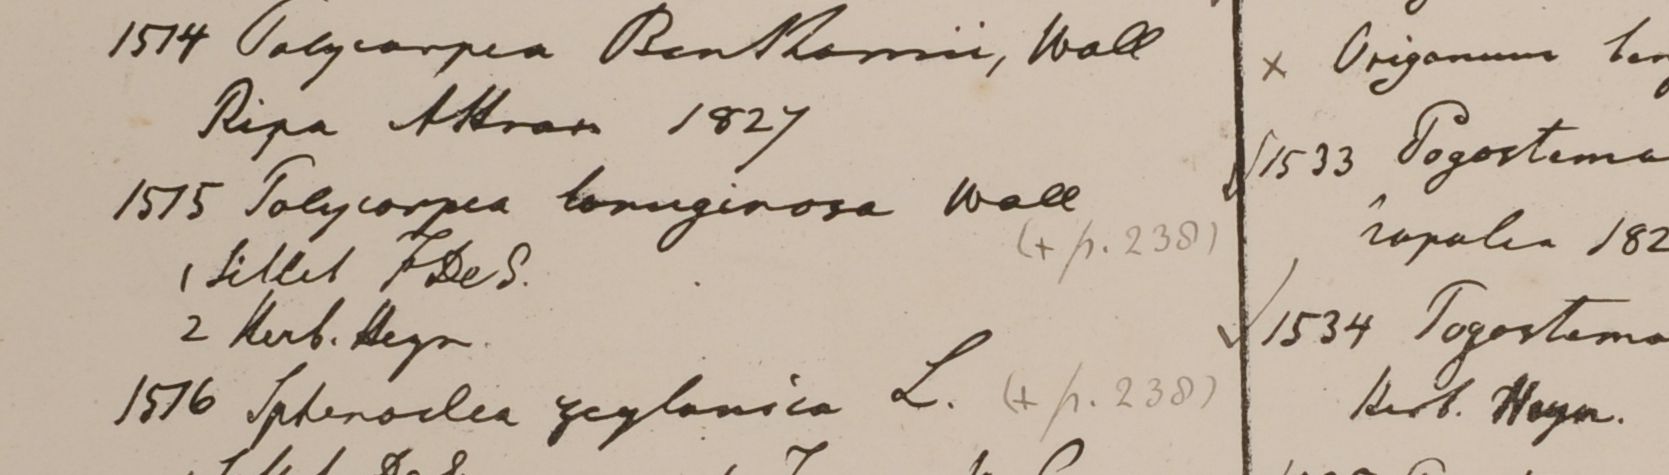 1514 Polycarpea Benthamii, Wall
Ripa Attran 1827
1515 Polycarpea lanuginosa Wall
(+ p. 238)
1 Sillet F De S.
2 Herb. Heyn.
1516 Sphenoclea zeylanica L. (+ p. 238)
x Origanum
✓ 1533 Pogostemo
Napalia 182
✓ 1534 Pogostemo
Herb. Heyn.